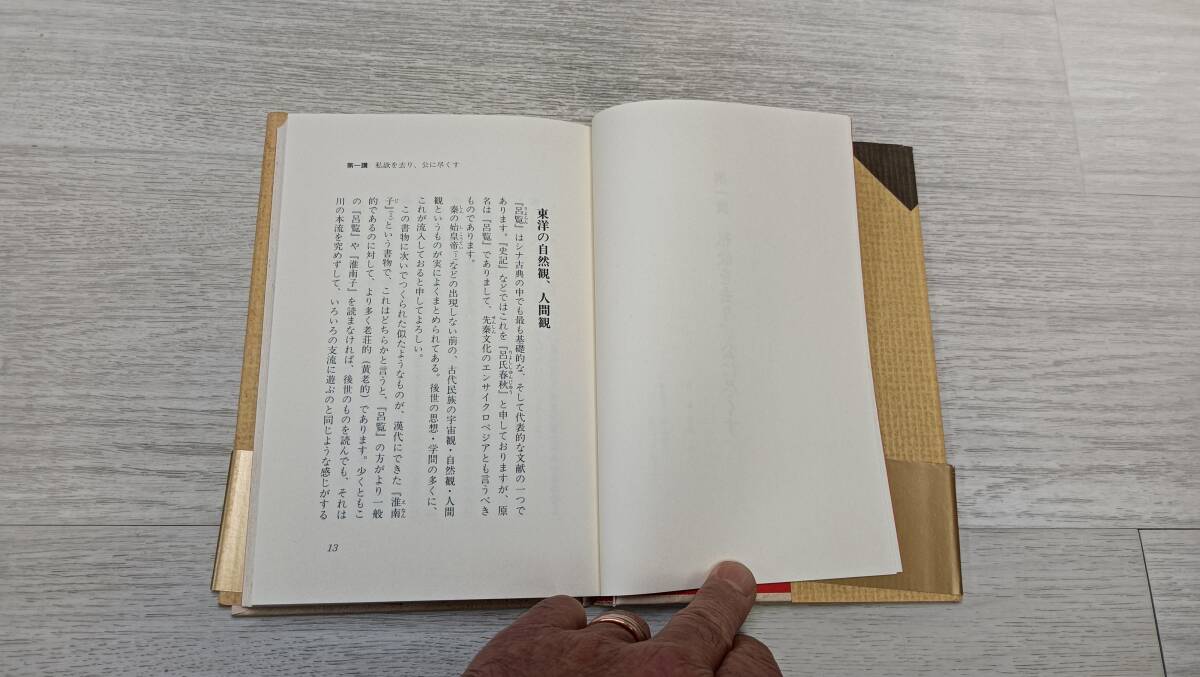 第一講 私欲を去り、公に尽くす
東洋の自然観、人間観
『呂覧』はシナ古典の中でも最も基礎的な、そして代表的な文献の一つで
あります。『史記』などではこれを『呂氏春秋』と申しておりますが、原
名は『呂覧』でありまして、先秦文化のエンサイクロペジアとも言うべき
ものであります。
秦の始皇帝(一)などの出現しない前の、古代民族の宇宙観・自然観・人間
観というものが実によくまとめられてある。後世の思想・学問の多くに、
これが流入しておると申してよろしい。
この書物に次いでつくられた似たようなものが、漢代にできた『淮南
子』(二)という書物で、これはどちらかと言うと、『呂覧』の方がより一般
的であるのに対して、より多く老荘的(黄老的)であります。少くともこ
の『呂覧』や『淮南子』を読まなければ、後世のものを読んでも、それは
川の本流を究めずして、いろいろの支流に遊ぶのと同じような感じがする
13